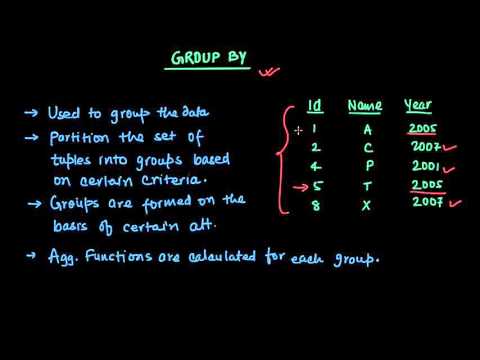 GROUP BY
→ Used to group the data
→ Partition the set of
tuples into groups based
on certain criteria.
→ Groups are formed on the
basis of certain att.
→ Agg. Functions are calculated for each group.
Id Name Year
1 A 2005
2 C 2007
4 P 2001
5 T 2005
8 X 2007